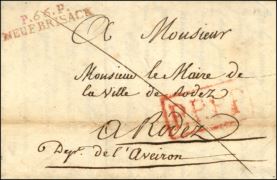 P.6x.P.
NEUF BRISACK
A Monsieur
Monsieur le Maire de
la ville de Rodez
P.P.P.P
A Rodez
Dep.t de l'Aveiron